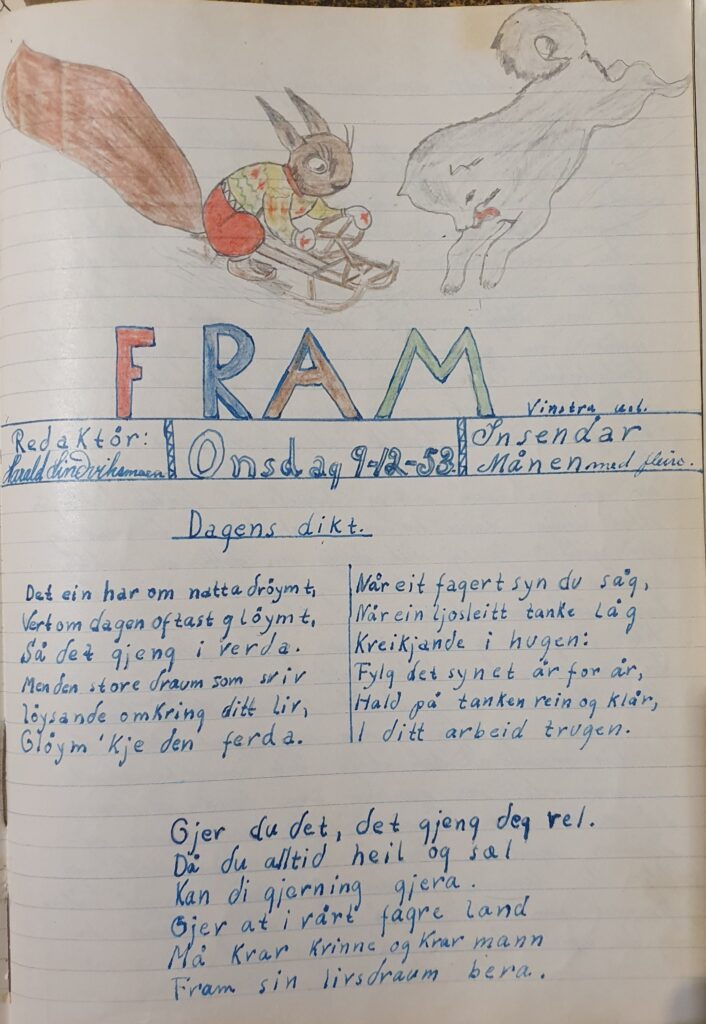 FRAM
Vinstra u.l.
Redaktör:
Harald
Onsdag 9-12-53.
Insendar
Månen med fleire.
Dagens dikt.
Det ein har om natta dröymt,
Vert om dagen oftast glöymt,
Så det gjeng i verda.
Men den store draum som sviv
löysande omkring ditt liv,
Glöym 'kje den ferda.
Når eit fagert syn du såg,
Når ein ljosleitt tanke låg
Kveikjande i hugen:
Fylg det synet år for år,
Hald på tanken rein og klår,
I ditt arbeid trugen.
Gjer du det, det gjeng deg vel.
Då du alltid heil og sæl
Kan di gjerning gjera.
Gjer at i vårt fagre land
Må kvar kvinne og kvar mann
Fram sin livsdraum bera.